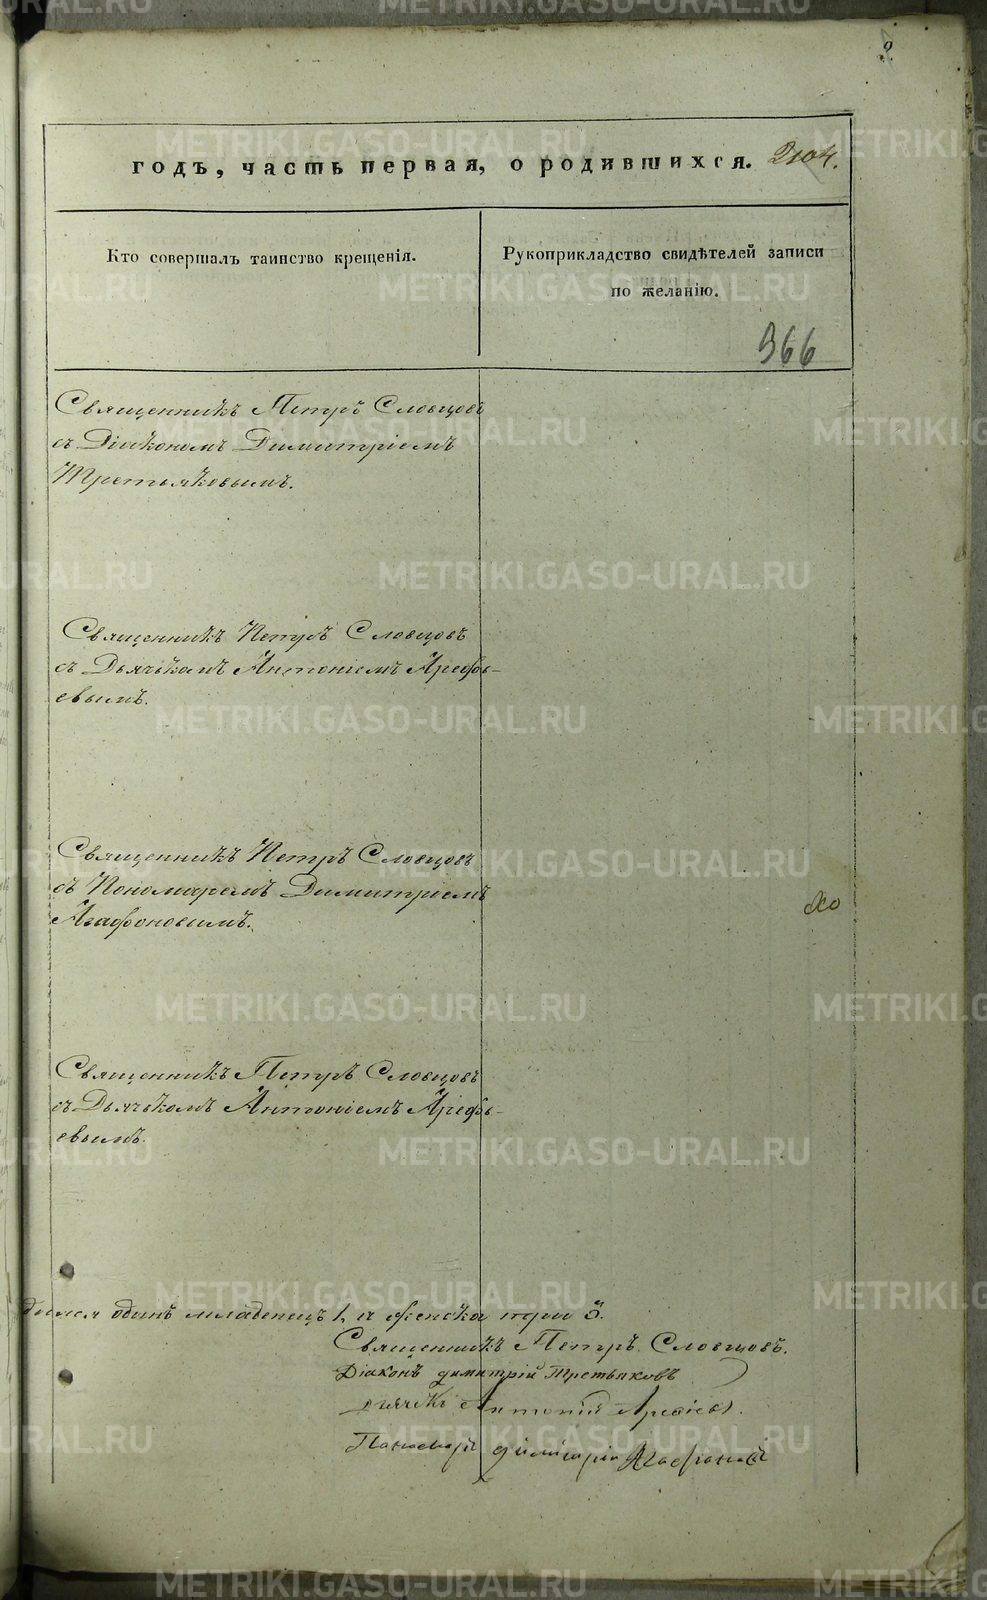 годъ, часть первая, о родившихся. 2104.
Кто совершалъ таинство крещенія.
Рукоприкладство свидѣтелей записи
по желанію.
366
Священникъ Петръ Словцовъ
съ Діакономъ Димитріемъ
Третьяковымъ.
Священникъ Петръ Словцовъ
съ Дьячькомъ Антоніемъ Арефь-
евымъ.
Священникъ Петръ Словцовъ
съ Пономаремъ Димитріемъ
Агафоновымъ.
Священникъ Петръ Словцовъ
съ Дьячькомъ Антоніемъ Арефь-
евымъ.
одинъ младенецъ 1, и женска три 3.
Священникъ Петръ Словцовъ.
Діаконъ Димитрій Третьяковъ
Дьячекъ Антоній Арефьевъ.
Пономарь Димитрій Агафоновъ
METRIKI.GASO-URAL.RU